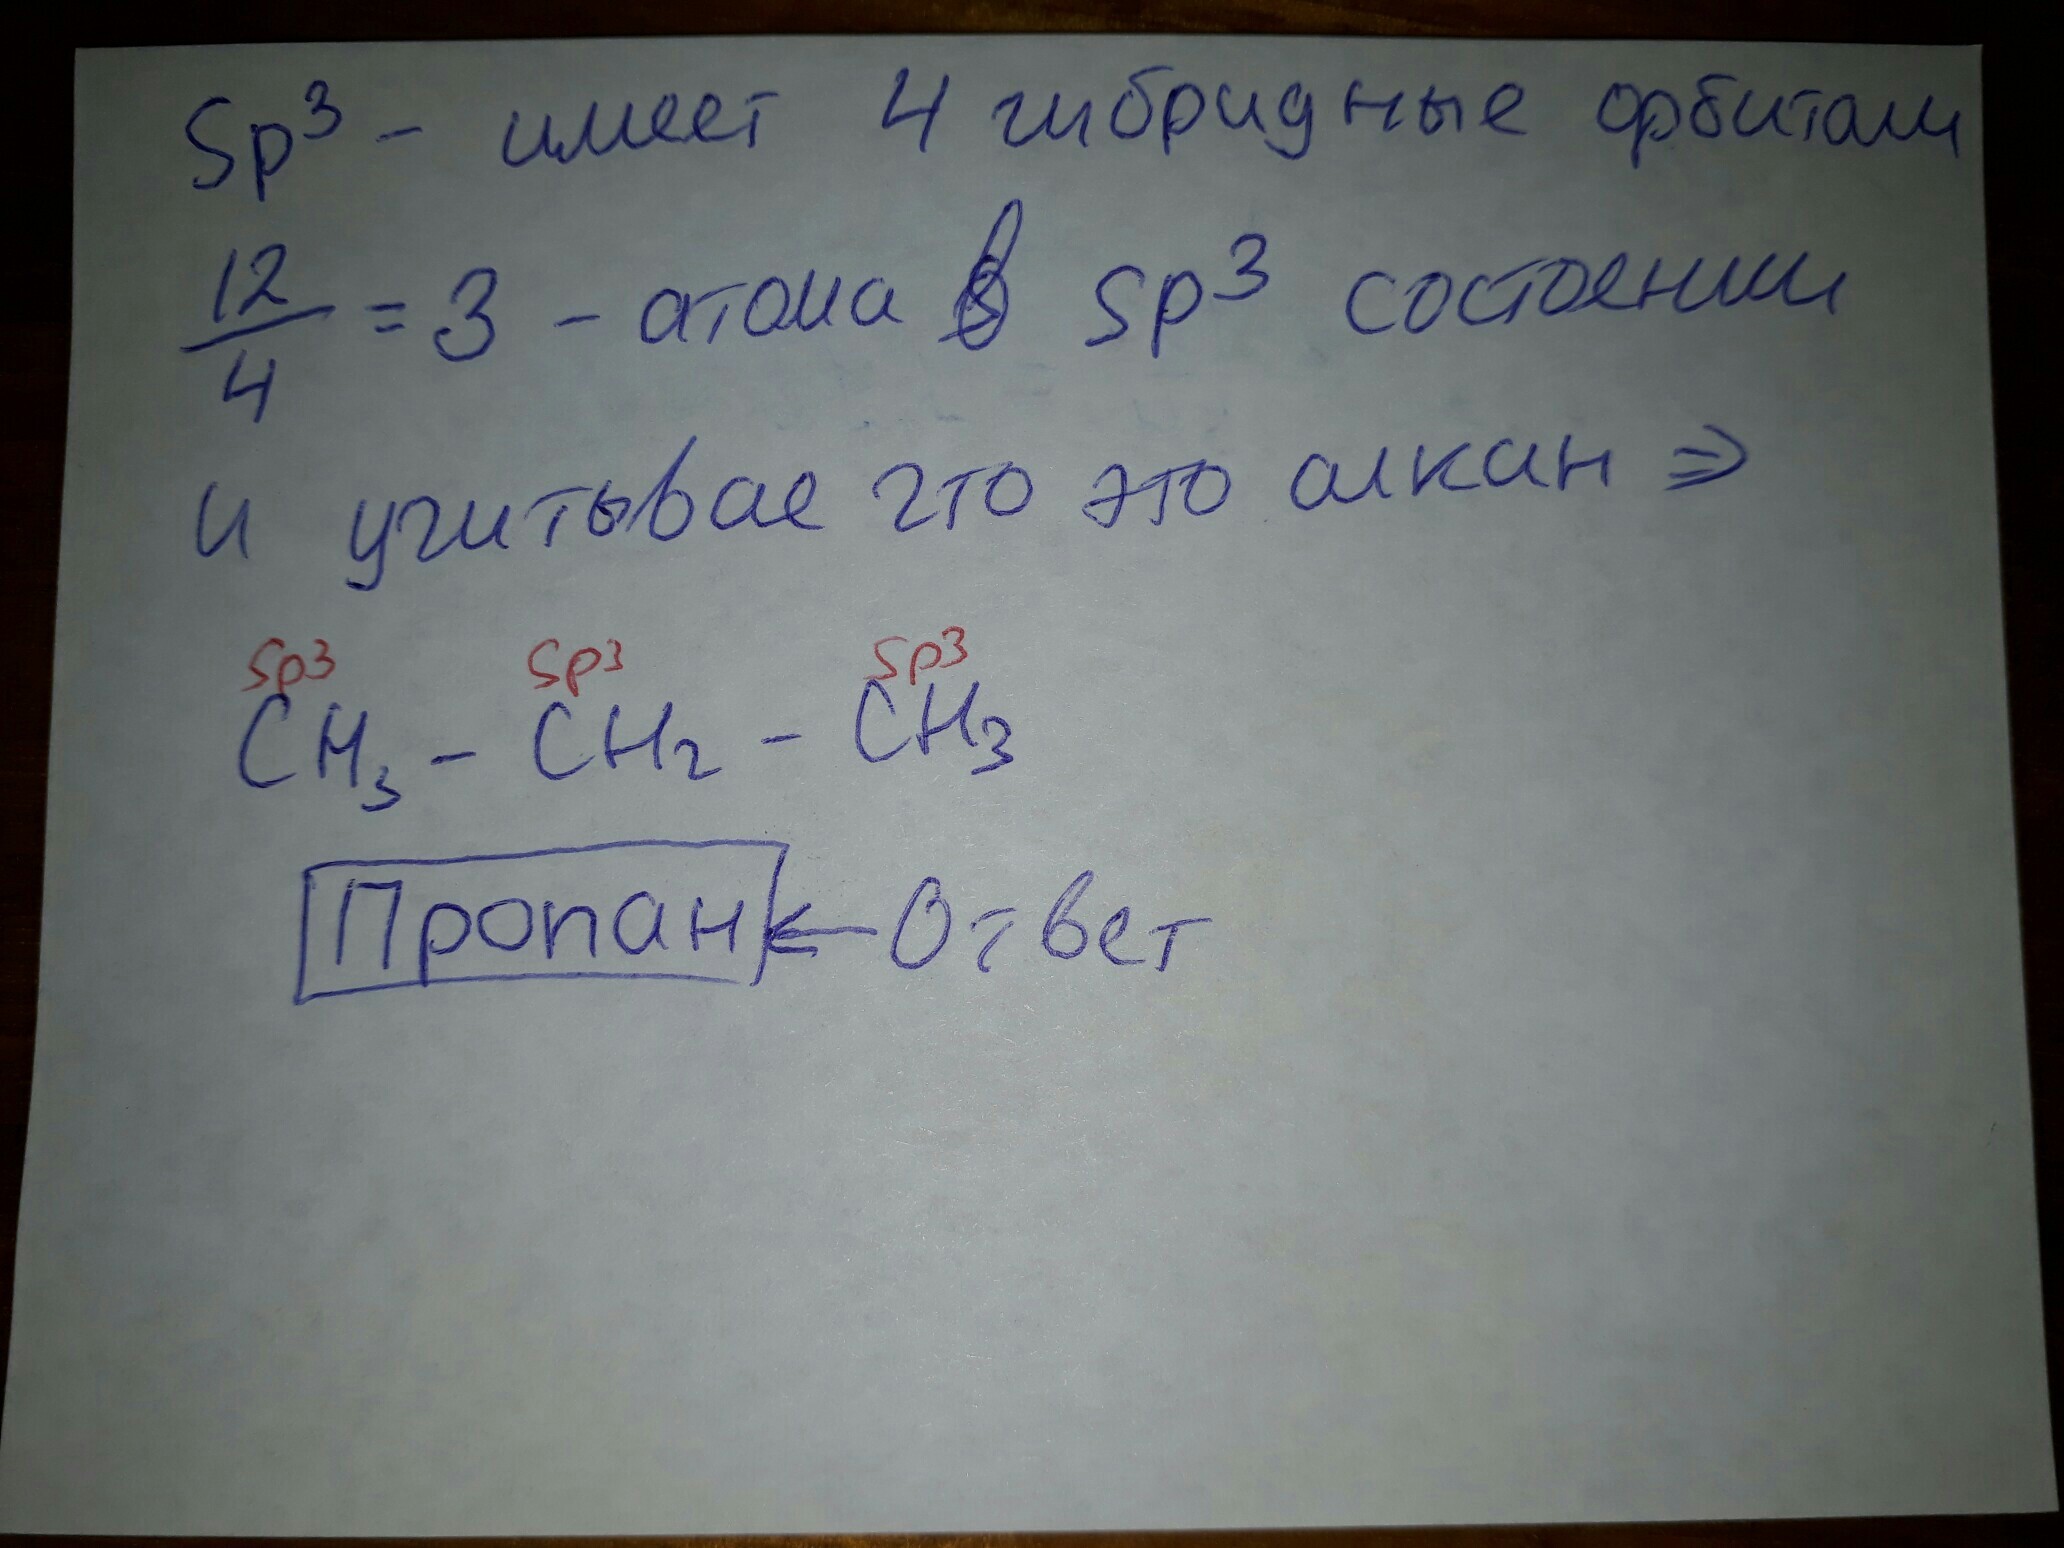 Sp³ - имеет 4 гибридные орбитали
12/4 = 3 - атома в sp³ состоянии
и учитывае что это алкан ⇒
Sp3 Sp3 Sp3
CH₃ - CH₂ - CH₃
Пропан ← Ответ